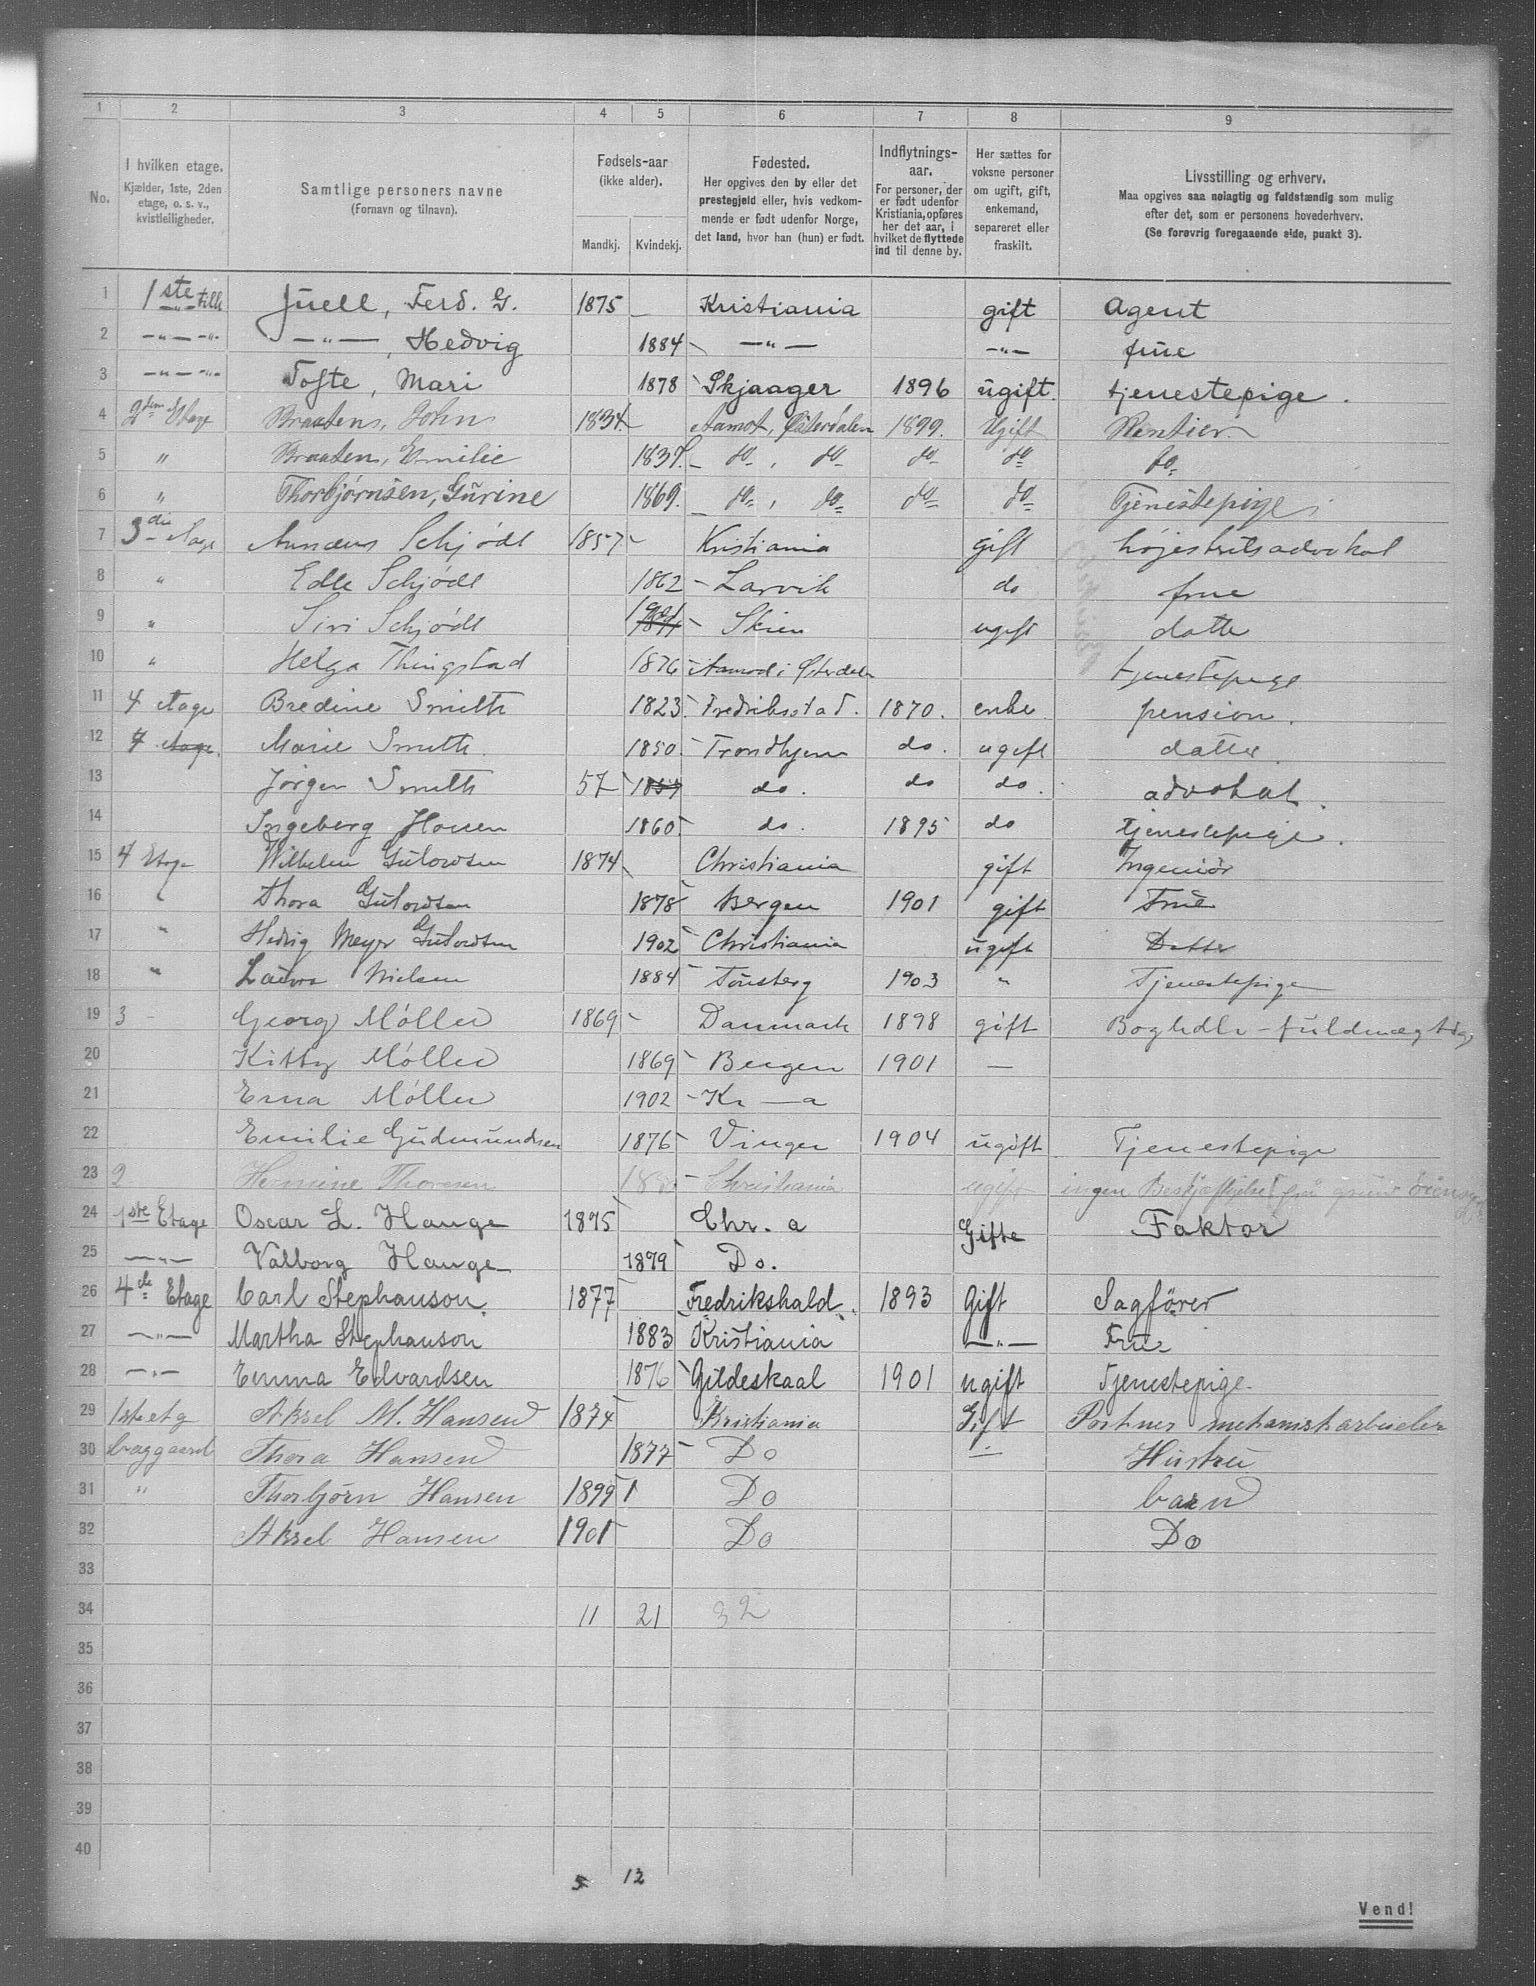 1 2 3 4 5 6 7 8 9
No. I hvilken etage. Kjælder, 1ste, 2den etage, o. s. v., kvistleiligheder. Samtlige personers navne (Fornavn og tilnavn). Fødsels-aar (ikke alder). Mandkj. Kvindekj. Fødested. Her opgives den by eller det prestegjeld eller, hvis vedkommende er født udenfor Norge, det land, hvor han (hun) er født. Indflytnings-aar. For personer, der er født udenfor Kristiania, opføres her det aar, i hvilket de flyttede ind til denne by. Her sættes for voksne personer om ugift, gift, enkemand, separeret eller fraskilt. Livsstilling og erhverv. Maa opgives saa nøiagtig og fuldstændig som mulig efter det, som er personens hovederhverv. (Se forøvrig foregaaende side, punkt 3).
1 1ste Juell, Ferd. G. 1875 Kristiania gift Agent
2 —"— —"—, Hedvig 1884 —"— —"— frue
3 —"— Tofte, Mari 1878 Skjaager 1896 ugift. tjenestepige.
4 2den Etage Braaten, John 1834. Aamot, Østerdalen 1899. Ugift Rentier.
5 " Braaten, Emilie 1837. do, do do do do
6 " Thorbjørnsen, Gurine 1869. do, do do do Tjenestepige
7 3die Etage Annæus Schjødt 1857 Kristiania gift højestretsadvokat
8 " Edle Schjødt 1862 Larvik do frue
9 " Siri Schjødt Skien ugift datter
10 " Helga Thingstad 1876 Aamod i Østerdalen tjenestepige
11 4 Etage Bredine Smith 1823. Fredriksstad. 1870. enke pension.
12 4 Etage. Marie Smith. 1850. Trondhjem do. ugift datter.
13 Jørgen Smith 57 1857 do. do do. advokat.
14 Ingeberg Houen 1860 do. 1895 do tjenestepige.
15 4 Etage Wilhelm Gulowsen 1874 Christiania gift Ingeniør
16 " Thora Gulowsen 1878 Bergen 1901 gift Frue
17 " Hedvig Meyer Gulowsen 1902 Christiania ugift Datter
18 " Laura Nielsen 1884 Tønsberg 1903 " Tjenestepige
19 3 Georg Møller 1869 Danmark 1898 gift Boghdlr-fuldmægtig
20 Kitty Møller 1869 Bergen 1901 —
21 Erna Møller 1902 Kr—a
22 Emilie Gudmundsen 1876 Vinger 1904 ugift Tjenestepige
23 2 Hermine Thoresen Christiania ugift ingen Beskjæftigelse
24 1ste Etage Oscar L. Hauge 1875 Chr.a Gifte Faktor
25 —"— Valborg Hauge 1879 Do.
26 4de Etage Carl Stephanson. 1877 Fredrikshald. 1893 Gift Sagfører
27 —"— Martha Stephanson 1883 Kristiania —"— Frue
28 —"— Emma Edvardsen 1876 Gildeskaal 1901 ugift Tjenestepige
29 1ste etg Aksel M. Hansen 1874 Kristiania Gift Portner mekanisk arbeider
30 baggaard Thora Hansen 1877 Do " Hustru
31 " Thorbjørn Hansen 1899 Do barn
32 Aksel Hansen 1901 Do Do
33
34 11 21 32
35
36
37
38
39
40
5 12
Vend!